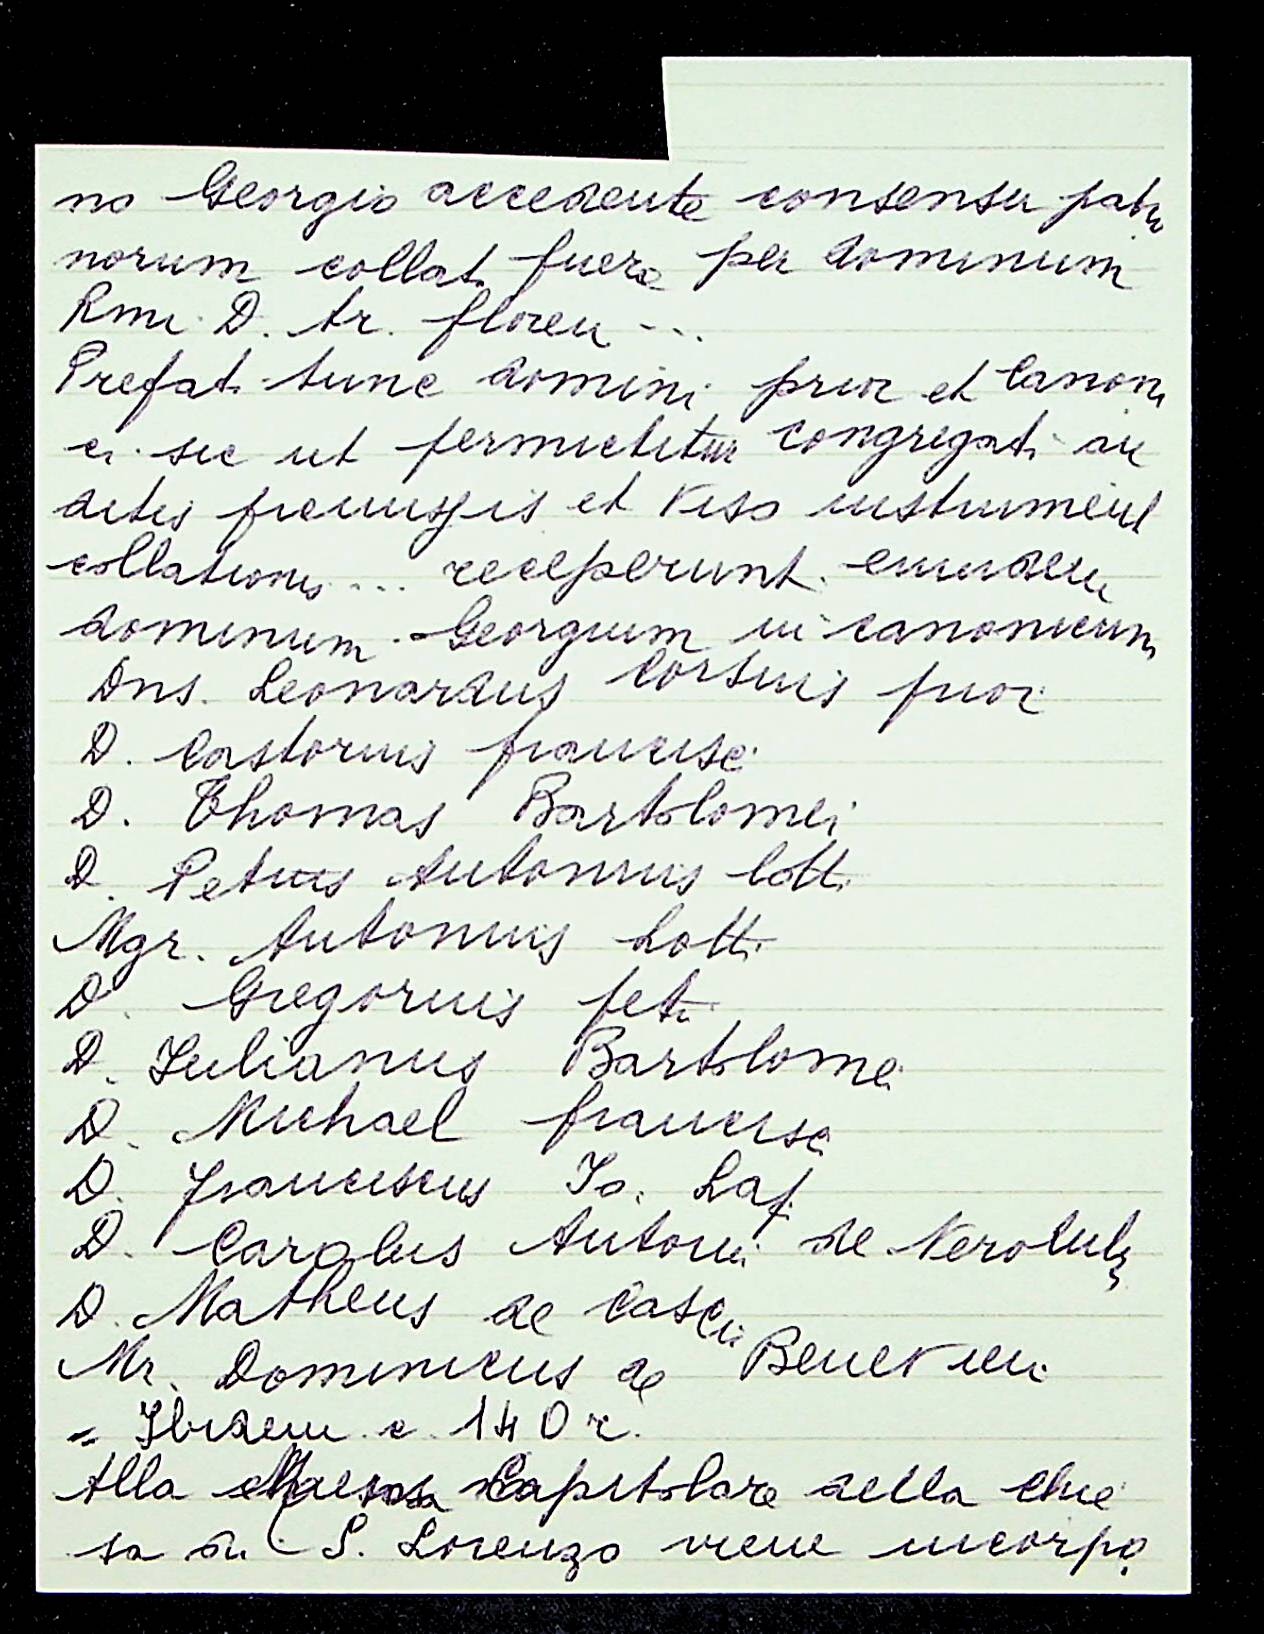 no Georgio accedente consensu patro
norum collat. fuere per dominum
Rmi. D. Ar. floren...
Prefati tunc domini prior et Canoni
ci sic ut permictitur congregati au
ditis premissis et viso instrument
collationis ... receperunt eundem
dominum Georgium in canonicum
Dns. Leonardus Corsinis prior
D. Castorius francisci
D. Thomas Bartolomei
D. Petrus Antonius lotti
Mgr. Antonius Lotti
D. Gregorius peti
D. Iulianus Bartolomei
D. Michael francisci
D. franciscus Io. Lapi
D. Carolus Antonii de Nerolulis
D. Matheus de Cascii
Mr. Dominicus de Benevieni
= Ibidem c. 140 r.
Alla Mensa Capitolare della Chie
sa di S. Lorenzo viene incorpo